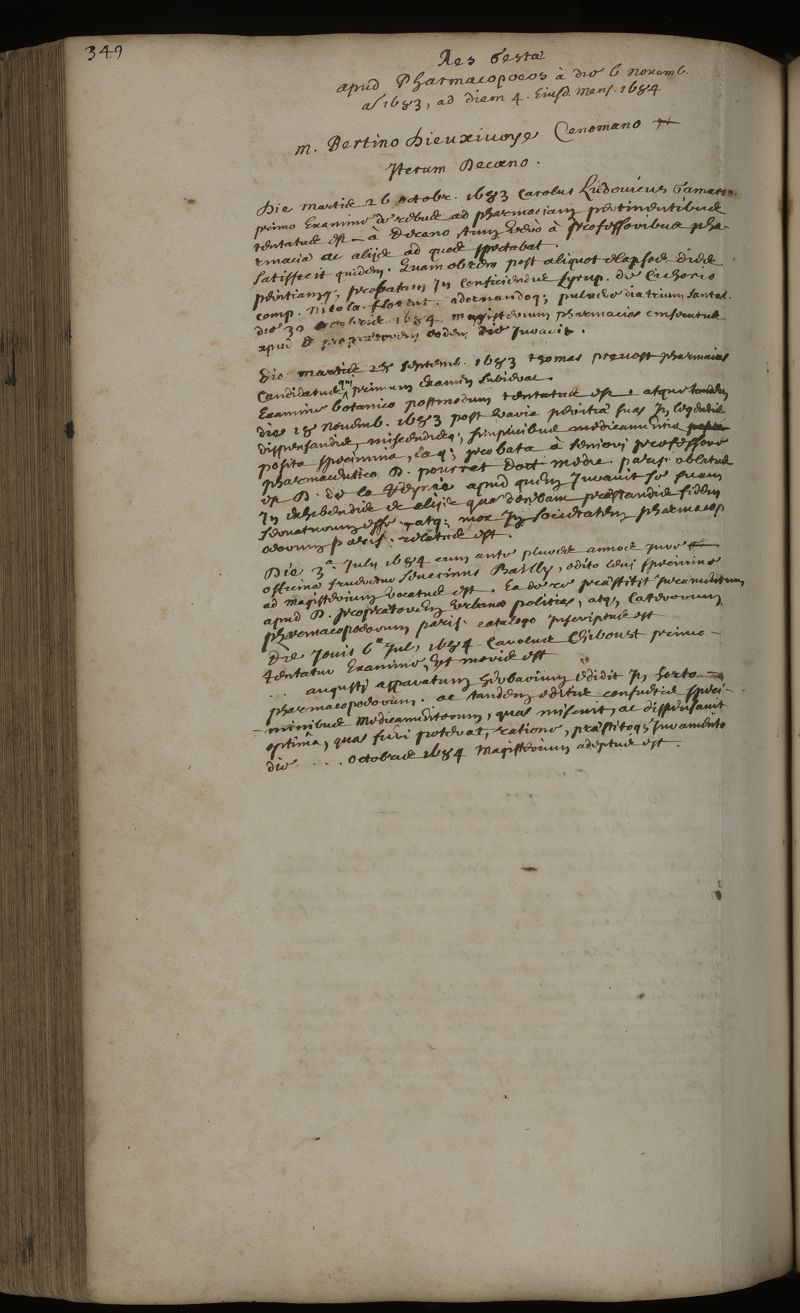 349
Res Gesta
apud Pharmacopoeos à die 6 novemb.
aō 1683, ad diem 4. Eiusd. Mens. 1684
m. Bertino Dieuxivoye Cenomano
Iterum Decano.
Die martis 26 octobr. 1683 Carolus Ludovicus
primo Examine de rebus ad pharmaciam pertinentibus
tentatus est à Decano, tum vero à professoribus pha-
rmaciæ ac aliis ad quos spectabat.
satisfecit quidem. Quam obrem post aliquot elapsos dies
peritiamq; probatam In conficiendis syrup. de Cichorio
comp. Nicola. florent. adornandoq; pulvere diatrium santal.
die 30 octobris 1684 magisterium pharmaciæ consecutus
apud eodem die Iuravit.
Die martis 28 septemb. 1683 thomas prevost pharmaciæ
Candidatus primum Examen subierat.
Examine botanico postmodum tentatus est, atque tandem
die 18 novemb. 1683 post varia peritiæ suæ In legendis
dispensandis, miscendisq; simplicibus medicamentis
posita specimina, eaq; probata à seniori professore
pharmaceutico D. pourret Doct medic. paris. oblatus
est D. de la Reynie apud quem Iuravit se suam
In exhibendis et aliis quæ debebant præstandis fidem
servaturum esse. atq; mox In societatem pharmacop
oeorum paris. relatus est.
Die 3ᵃ. Iuly 1684 cum ante plures annos Iure
officina frueretur Severinus Bailly, edito levi specimine
ad Magisterium vocatus est. Ea de re præstitit Iuramentum
apud D. propraetorem Urbanæ politiæ, atq; Cæterorum
pharmacopoeorum paris. catalogo Inscriptus est
Die Iovis 6ᵃ Iul, 1684 Carolus Thiboust primo
tentatur Examine, ut moris est
.. augusti apparatum herbarium edidit In horto
pharmacopoeorum. ac tandem editis consuetis speci-
minibus Medicamentorum, quæ miscuit, ac dispensavit
optima, quæ fieri poterat, ratione, præstitoq; Iuramento
die .... octobris 1684 Magisterium adeptus est.